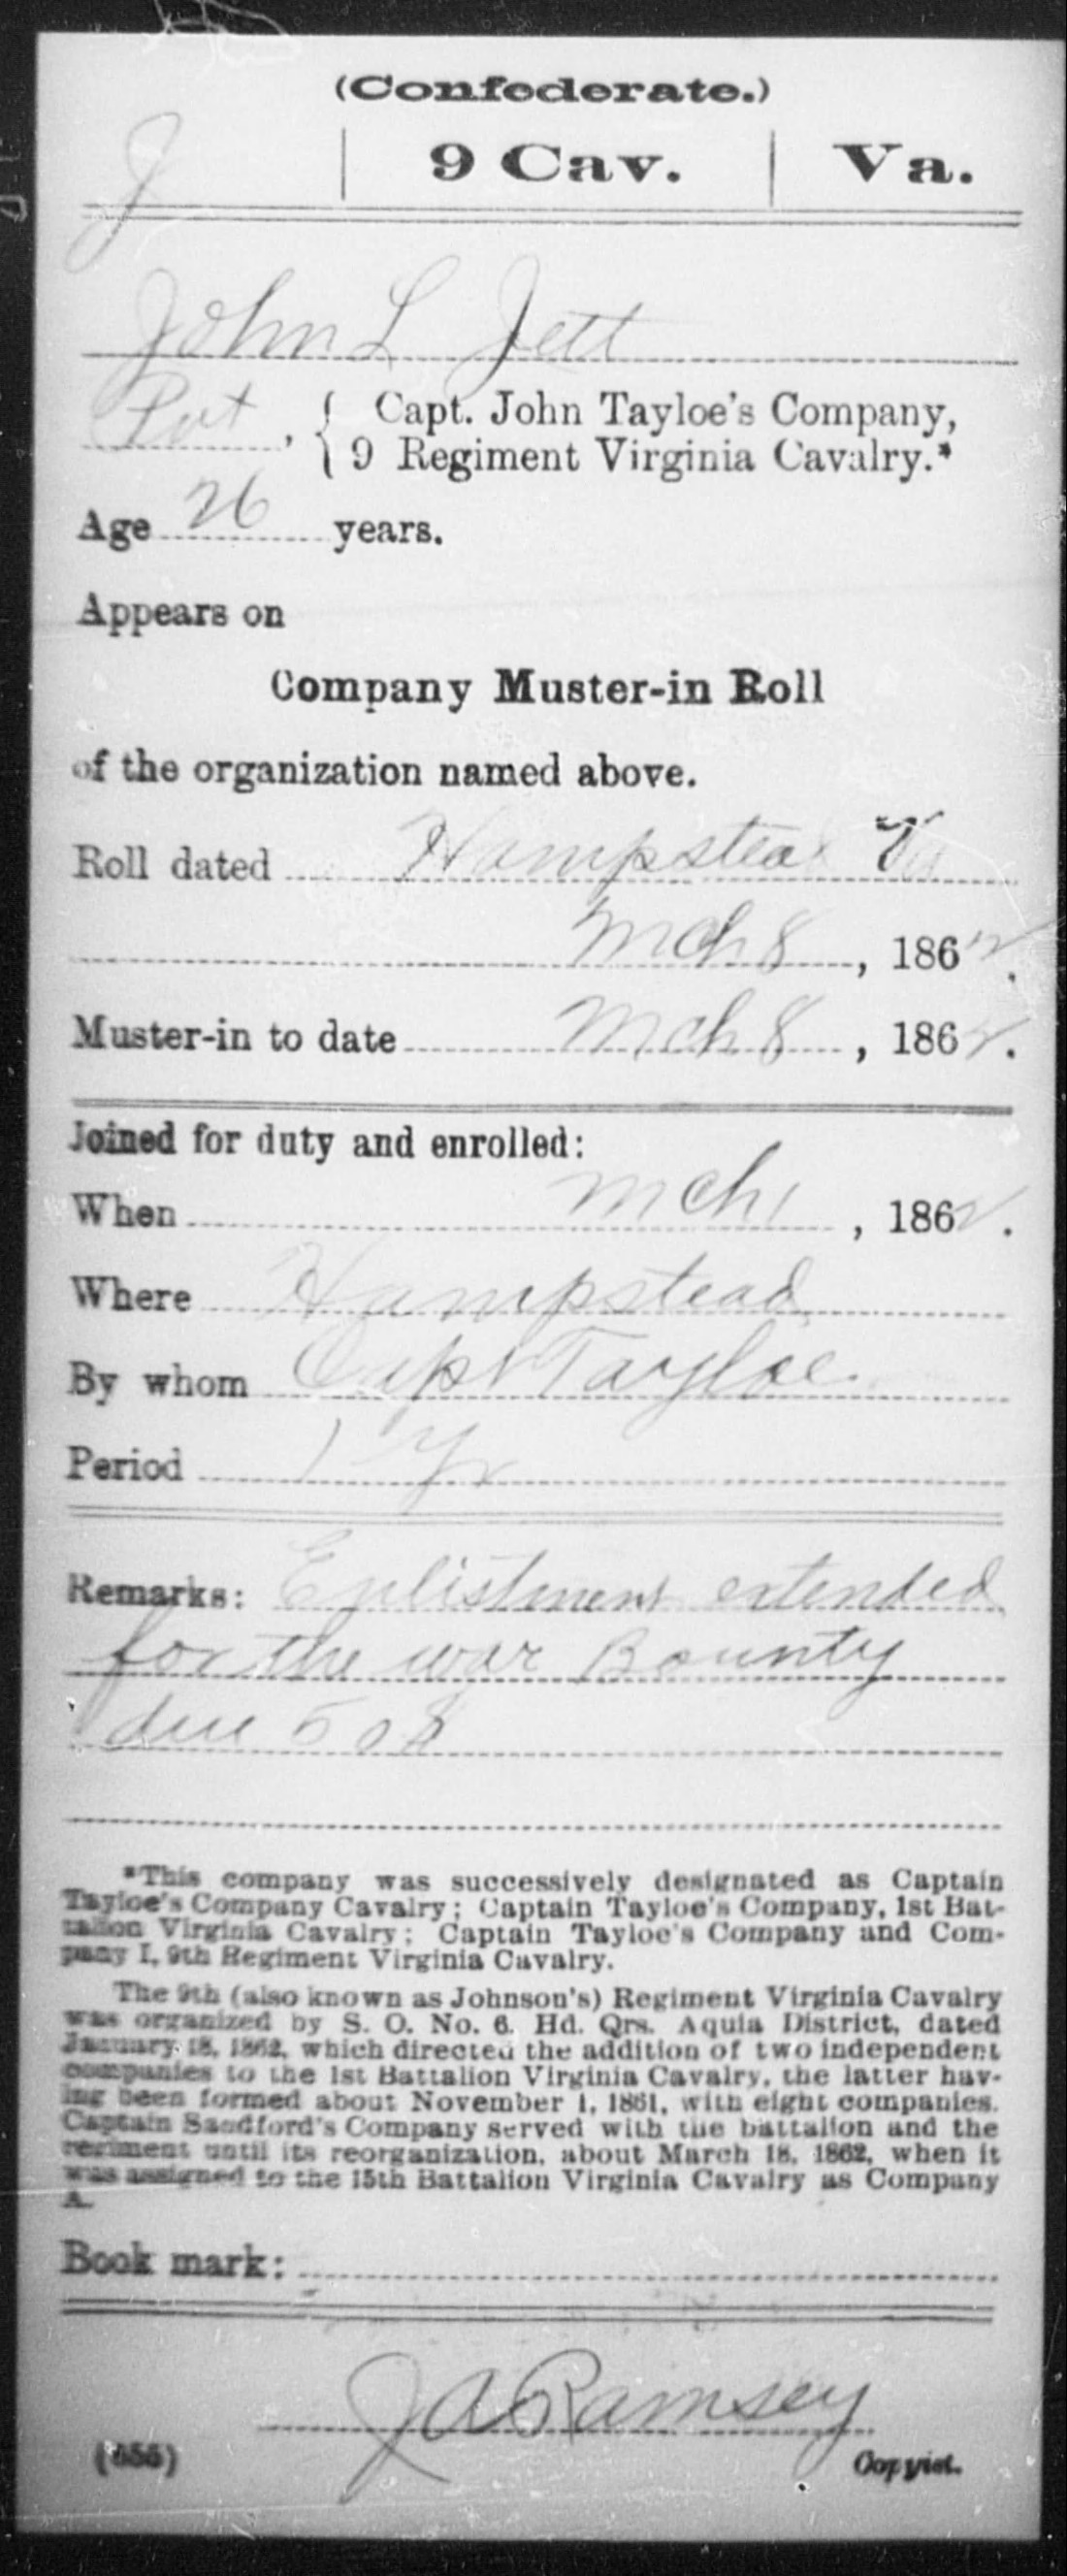 (Confederate.)
J | 9 Cav. | Va.
John L Jett
Pvt, { Capt. John Tayloe's Company,
9 Regiment Virginia Cavalry.*
Age 26 years.
Appears on
Company Muster-in Roll
of the organization named above.
Roll dated Hampstead Va
Mch 8, 1862.
Muster-in to date Mch 8, 1862.
Joined for duty and enrolled:
When Mch 1, 1862.
Where Hampstead
By whom Capt Tayloe
Period 1 Yr
Remarks: Enlistment extended
for the war Bounty
due 50$
*This company was successively designated as Captain
Tayloe's Company Cavalry; Captain Tayloe's Company, 1st Bat-
talion Virginia Cavalry; Captain Tayloe's Company and Com-
pany I, 9th Regiment Virginia Cavalry.
The 9th (also known as Johnson's) Regiment Virginia Cavalry
was organized by S. O. No. 6. Hd. Qrs. Aquia District, dated
January 18, 1862, which directed the addition of two independent
companies to the 1st Battalion Virginia Cavalry, the latter hav-
ing been formed about November 1, 1861, with eight companies.
Captain Sandford's Company served with the battalion and the
regiment until its reorganization, about March 18, 1862, when it
was assigned to the 15th Battalion Virginia Cavalry as Company
A.
Book mark:
J A Ramsey
(656)
Copyist.